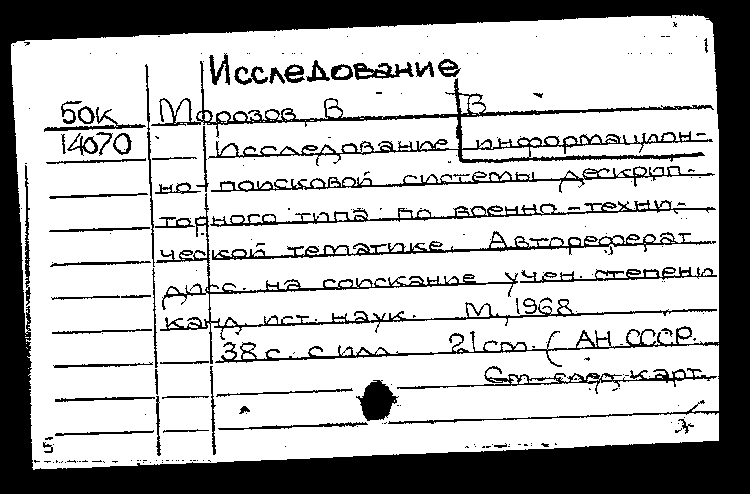 Исследование
БОК Морозов, В В
14070 Исследование информацион-
но-поисковой системы дескрип-
торного типа по военно-техни-
ческой тематике. Автореферат
дисс. на соискание учен. степени
канд. ист. наук. М., 1968
38 с. с илл. 21 см. (АН СССР.
См. след. карт.
5